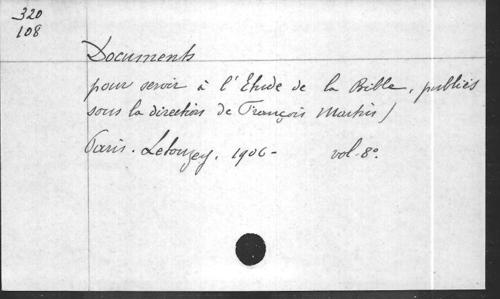 320
108
Documents
pour servir à l'Etude de la Bible, publiés
sous la direction de François Martin /
Paris. Letouzey. 1906- vol. 8º.